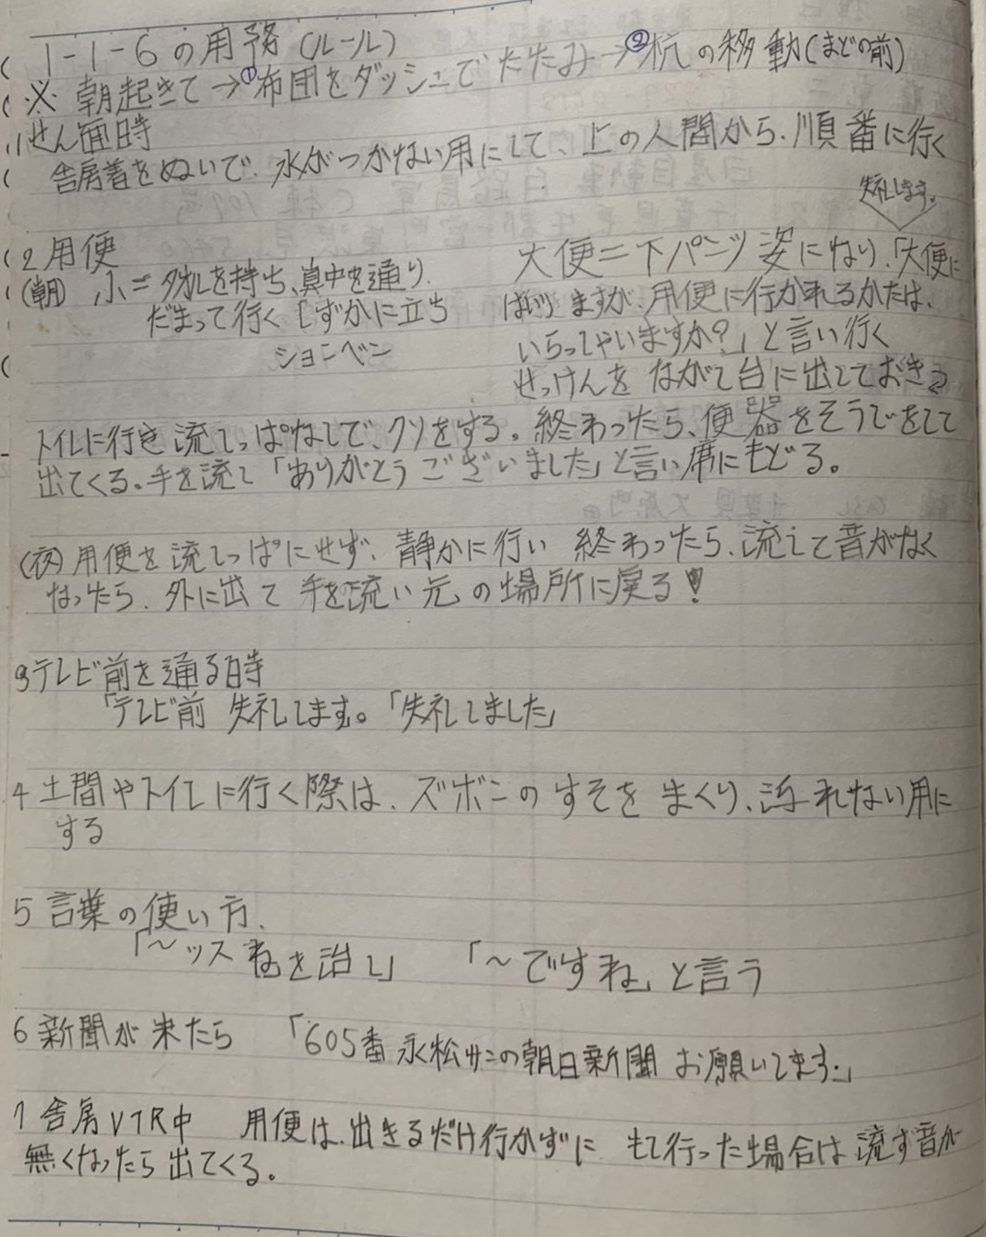 1-1-6の用務(ルール)
※朝起きて→①布団をダッシュでたたみ→②机の移動(まどの前)
1せん面時
舎房着をぬいで、水がつかない用にして、上の人間から、順番に行く
失礼します。
2用便
(朝) 小=タオルを持ち、真中を通り、
だまって行く しずかに立ち
ションベン
大便=下パンツ姿になり、「大便に
はいりますが、用便に行かれるかたは、
いらっしゃいますか?」と言い行く
せっけんを ながし台に出しておき
トイレに行き 流しっぱなしで、クソをする。終わったら、便器をそうじをして
出てくる。手を流し「ありがとうございました」と言い席にもどる。
(夜)用便を流しっぱにせず、静かに行い 終わったら、流して音がなく
なったら、外に出て 手を流い元の場所に戻る!
3テレビ前を通る時
「テレビ前 失礼します。「失礼しました」
4土間やトイレに行く際は、ズボンのすそをまくり、濡れない用に
する
5言葉の使い方、
「~ッスねを治し」 「~ですね」と言う
6新聞が来たら 「605番永松サンの朝日新聞 お願いします。」
7舎房VTR中 用便は、出きるだけ行かずに もし行った場合は流す音が
無くなったら出てくる。